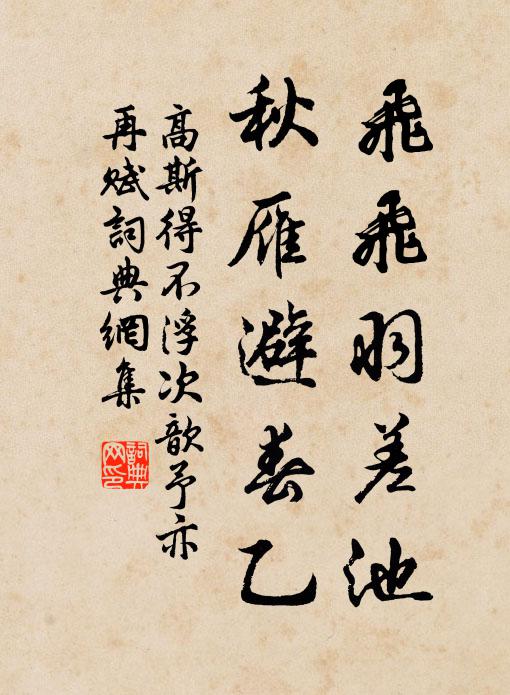 飛飛羽差池
秋雁避春乙
高斯得不浮次歆予亦
再賦詞典網集
詞典
网印